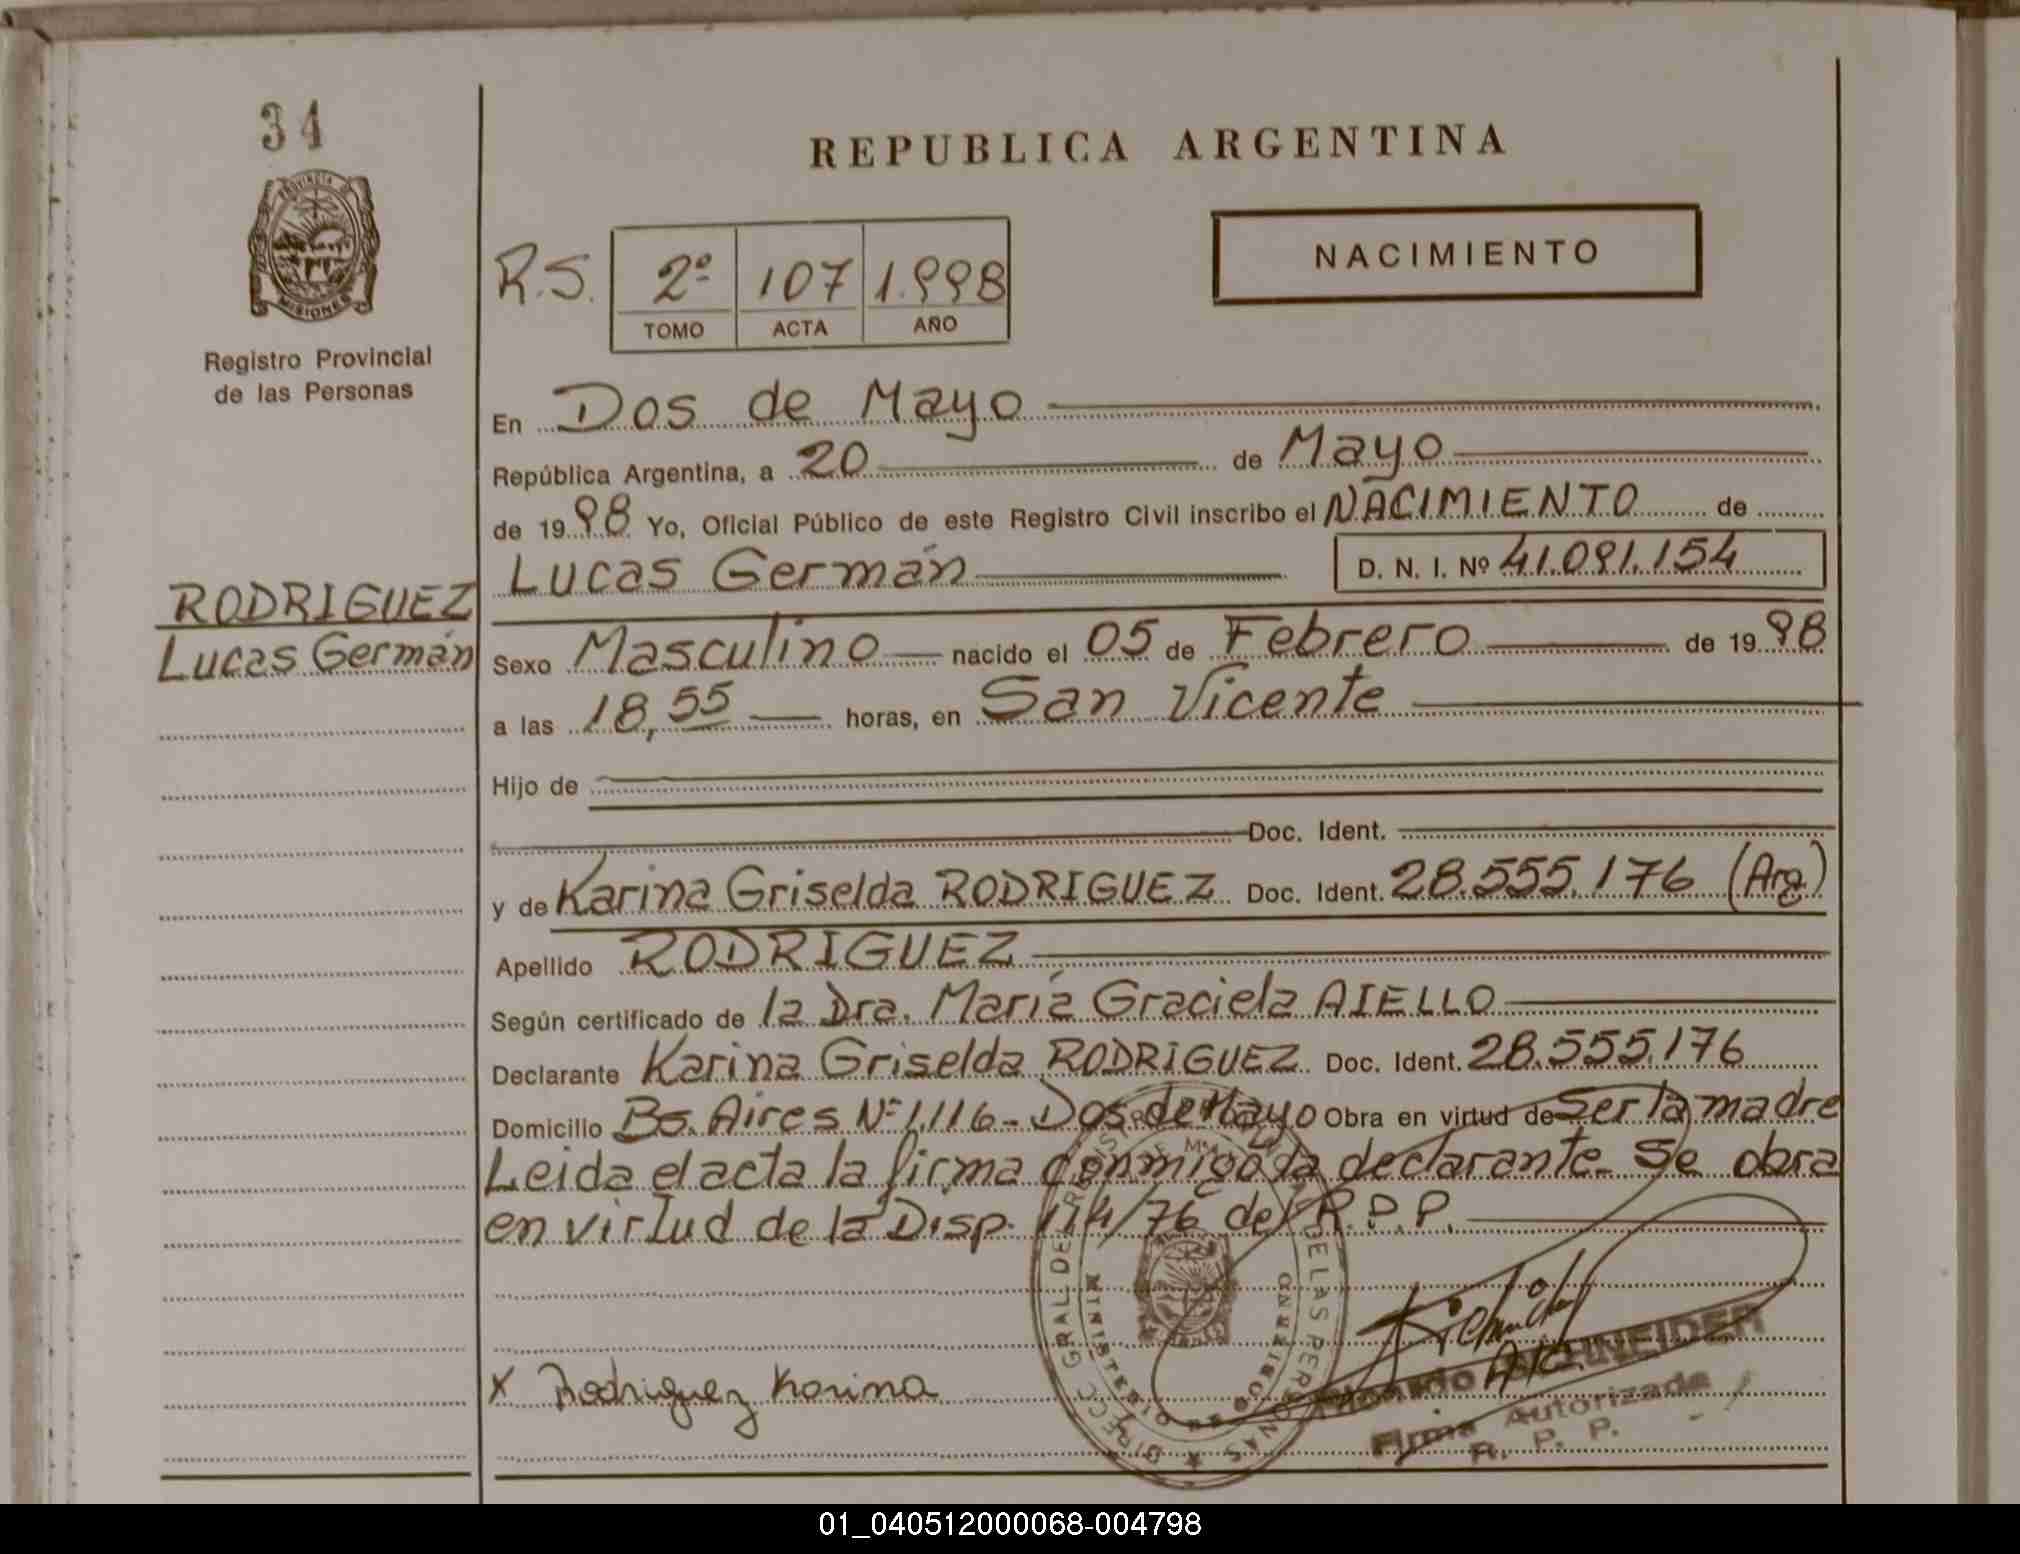 34
PROVINCIA DE
MISIONES
Registro Provincial
de las Personas
RODRIGUEZ
Lucas Germán
REPUBLICA ARGENTINA
NACIMIENTO
R.S. 2º 107 1.998
TOMO ACTA AÑO
En Dos de Mayo
República Argentina, a 20 de Mayo
de 1998 Yo, Oficial Público de este Registro Civil inscribo el NACIMIENTO de
Lucas Germán D. N. I. Nº 41.091.154
Sexo Masculino nacido el 05 de Febrero de 1998
a las 18,55 horas, en San Vicente
Hijo de
Doc. Ident.
y de Karina Griselda RODRIGUEZ Doc. Ident. 28.555.176 (Arg.)
Apellido RODRIGUEZ
Según certificado de la Dra. María Graciela AIELLO
Declarante Karina Griselda RODRIGUEZ Doc. Ident. 28.555.176
Domicilio Bs. Aires Nº 1.116 - Dos de Mayo Obra en virtud de ser la madre
Leida el acta la firma conmigo la declarante. Se obra
en virtud de la Disp. 114/76 del R.P.P.
X Rodriguez Karina
DIRECC GRAL DE DE LAS PERSONAS
MINISTERIO DE GOBIERNO
Ricardo SCHNEIDER
Firma Autorizada
R. P. P.
01_040512000068-004798